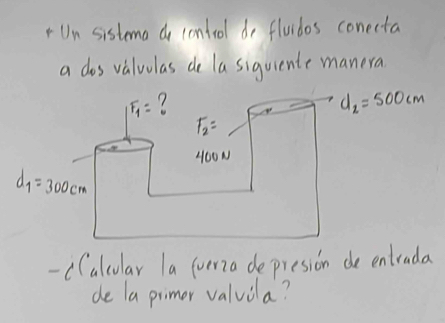 * Un sistema de control de fluidos conecta
a dos válvulas de la siguiente manera.
F₁ = ?
d₂ = 500 cm
F₂ =
400 N
d₁ = 300 cm
- ¿Calcular la fuerza de presión de entrada
de la primer valvúla?